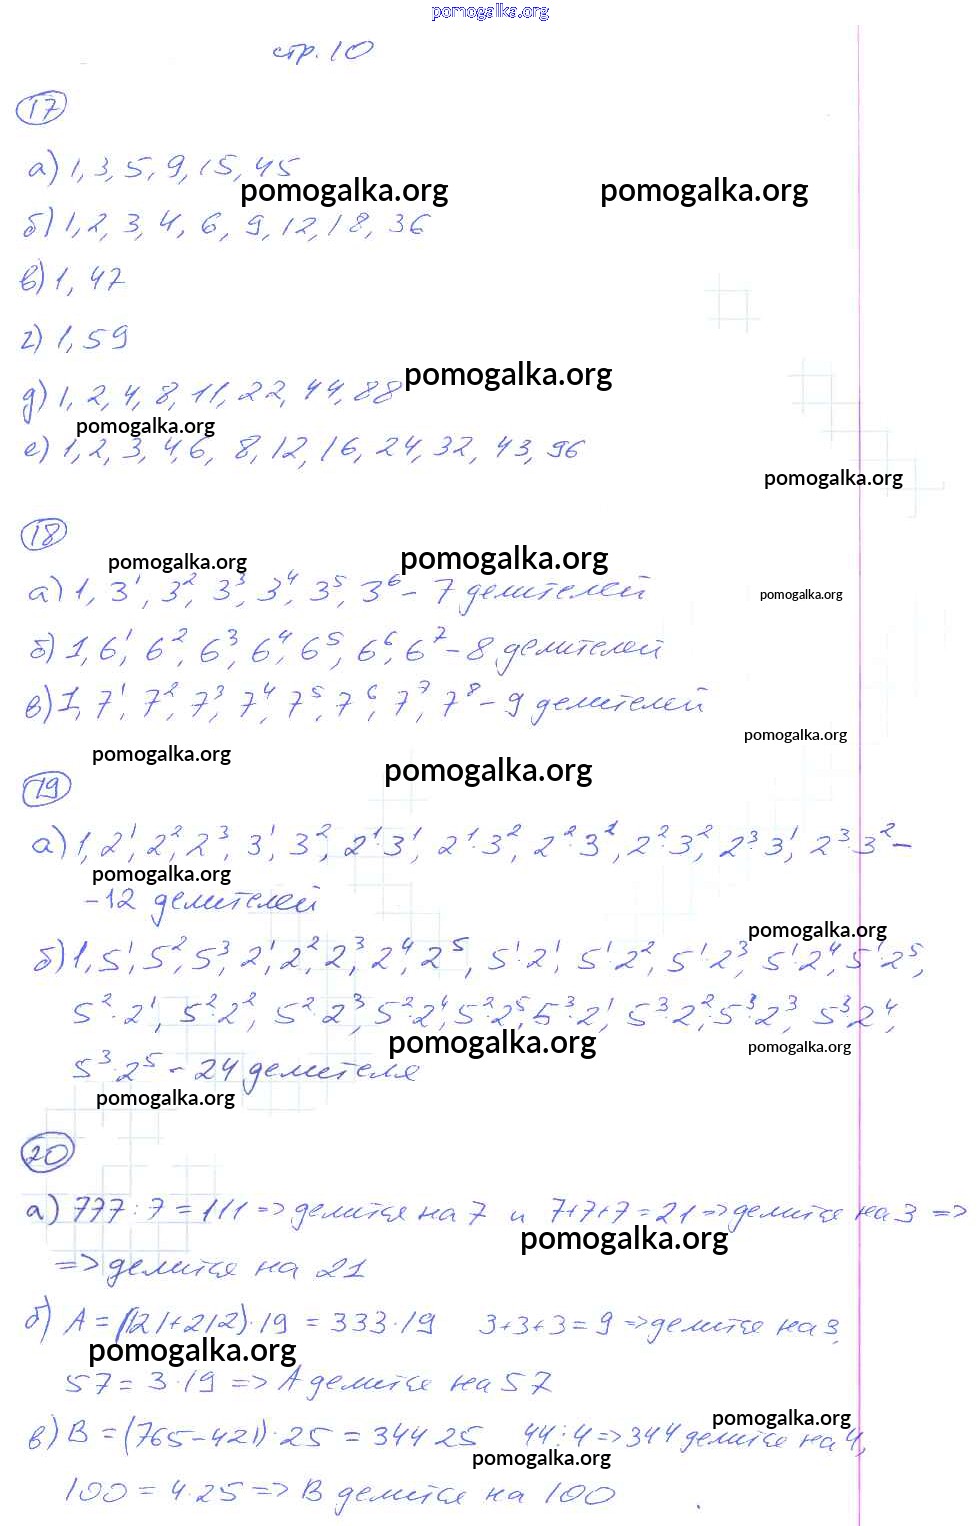 pomogalka.org
стр. 10
17
а) 1, 3, 5, 9, 15, 45
pomogalka.org pomogalka.org
б) 1, 2, 3, 4, 6, 9, 12, 18, 36
в) 1, 47
г) 1, 59
pomogalka.org
д) 1, 2, 4, 8, 11, 22, 44, 88
pomogalka.org
е) 1, 2, 3, 4, 6, 8, 12, 16, 24, 32, 43, 96
pomogalka.org
18
pomogalka.org pomogalka.org
а) 1, 3¹, 3², 3³, 3⁴, 3⁵, 3⁶ – 7 делителей
pomogalka.org
б) 1, 6¹, 6², 6³, 6⁴, 6⁵, 6⁶, 6⁷ – 8 делителей
в) 1, 7¹, 7², 7³, 7⁴, 7⁵, 7⁶, 7⁷, 7⁸ – 9 делителей
pomogalka.org
pomogalka.org
pomogalka.org
19
а) 1, 2¹, 2², 2³, 3¹, 3², 2¹·3¹, 2¹·3², 2²·3¹, 2²·3², 2³·3¹, 2³·3² –
pomogalka.org
– 12 делителей
pomogalka.org
б) 1, 5¹, 5², 5³, 2¹, 2², 2³, 2⁴, 2⁵, 5¹·2¹, 5¹·2², 5¹·2³, 5¹·2⁴, 5¹·2⁵,
5²·2¹, 5²·2², 5²·2³, 5²·2⁴, 5²·2⁵, 5³·2¹, 5³·2², 5³·2³, 5³·2⁴,
pomogalka.org pomogalka.org
5³·2⁵ – 24 делителя
pomogalka.org
20
а) 777 : 7 = 111 => делится на 7 и 7+7+7 = 21 => делится на 3 =>
pomogalka.org
=> делится на 21
б) A = (121+212)·19 = 333·19 3+3+3 = 9 => делится на 3,
pomogalka.org
57 = 3·19 => A делится на 57
pomogalka.org
в) B = (765–421)·25 = 344·25 44 : 4 => 344 делится на 4,
pomogalka.org
100 = 4·25 => B делится на 100